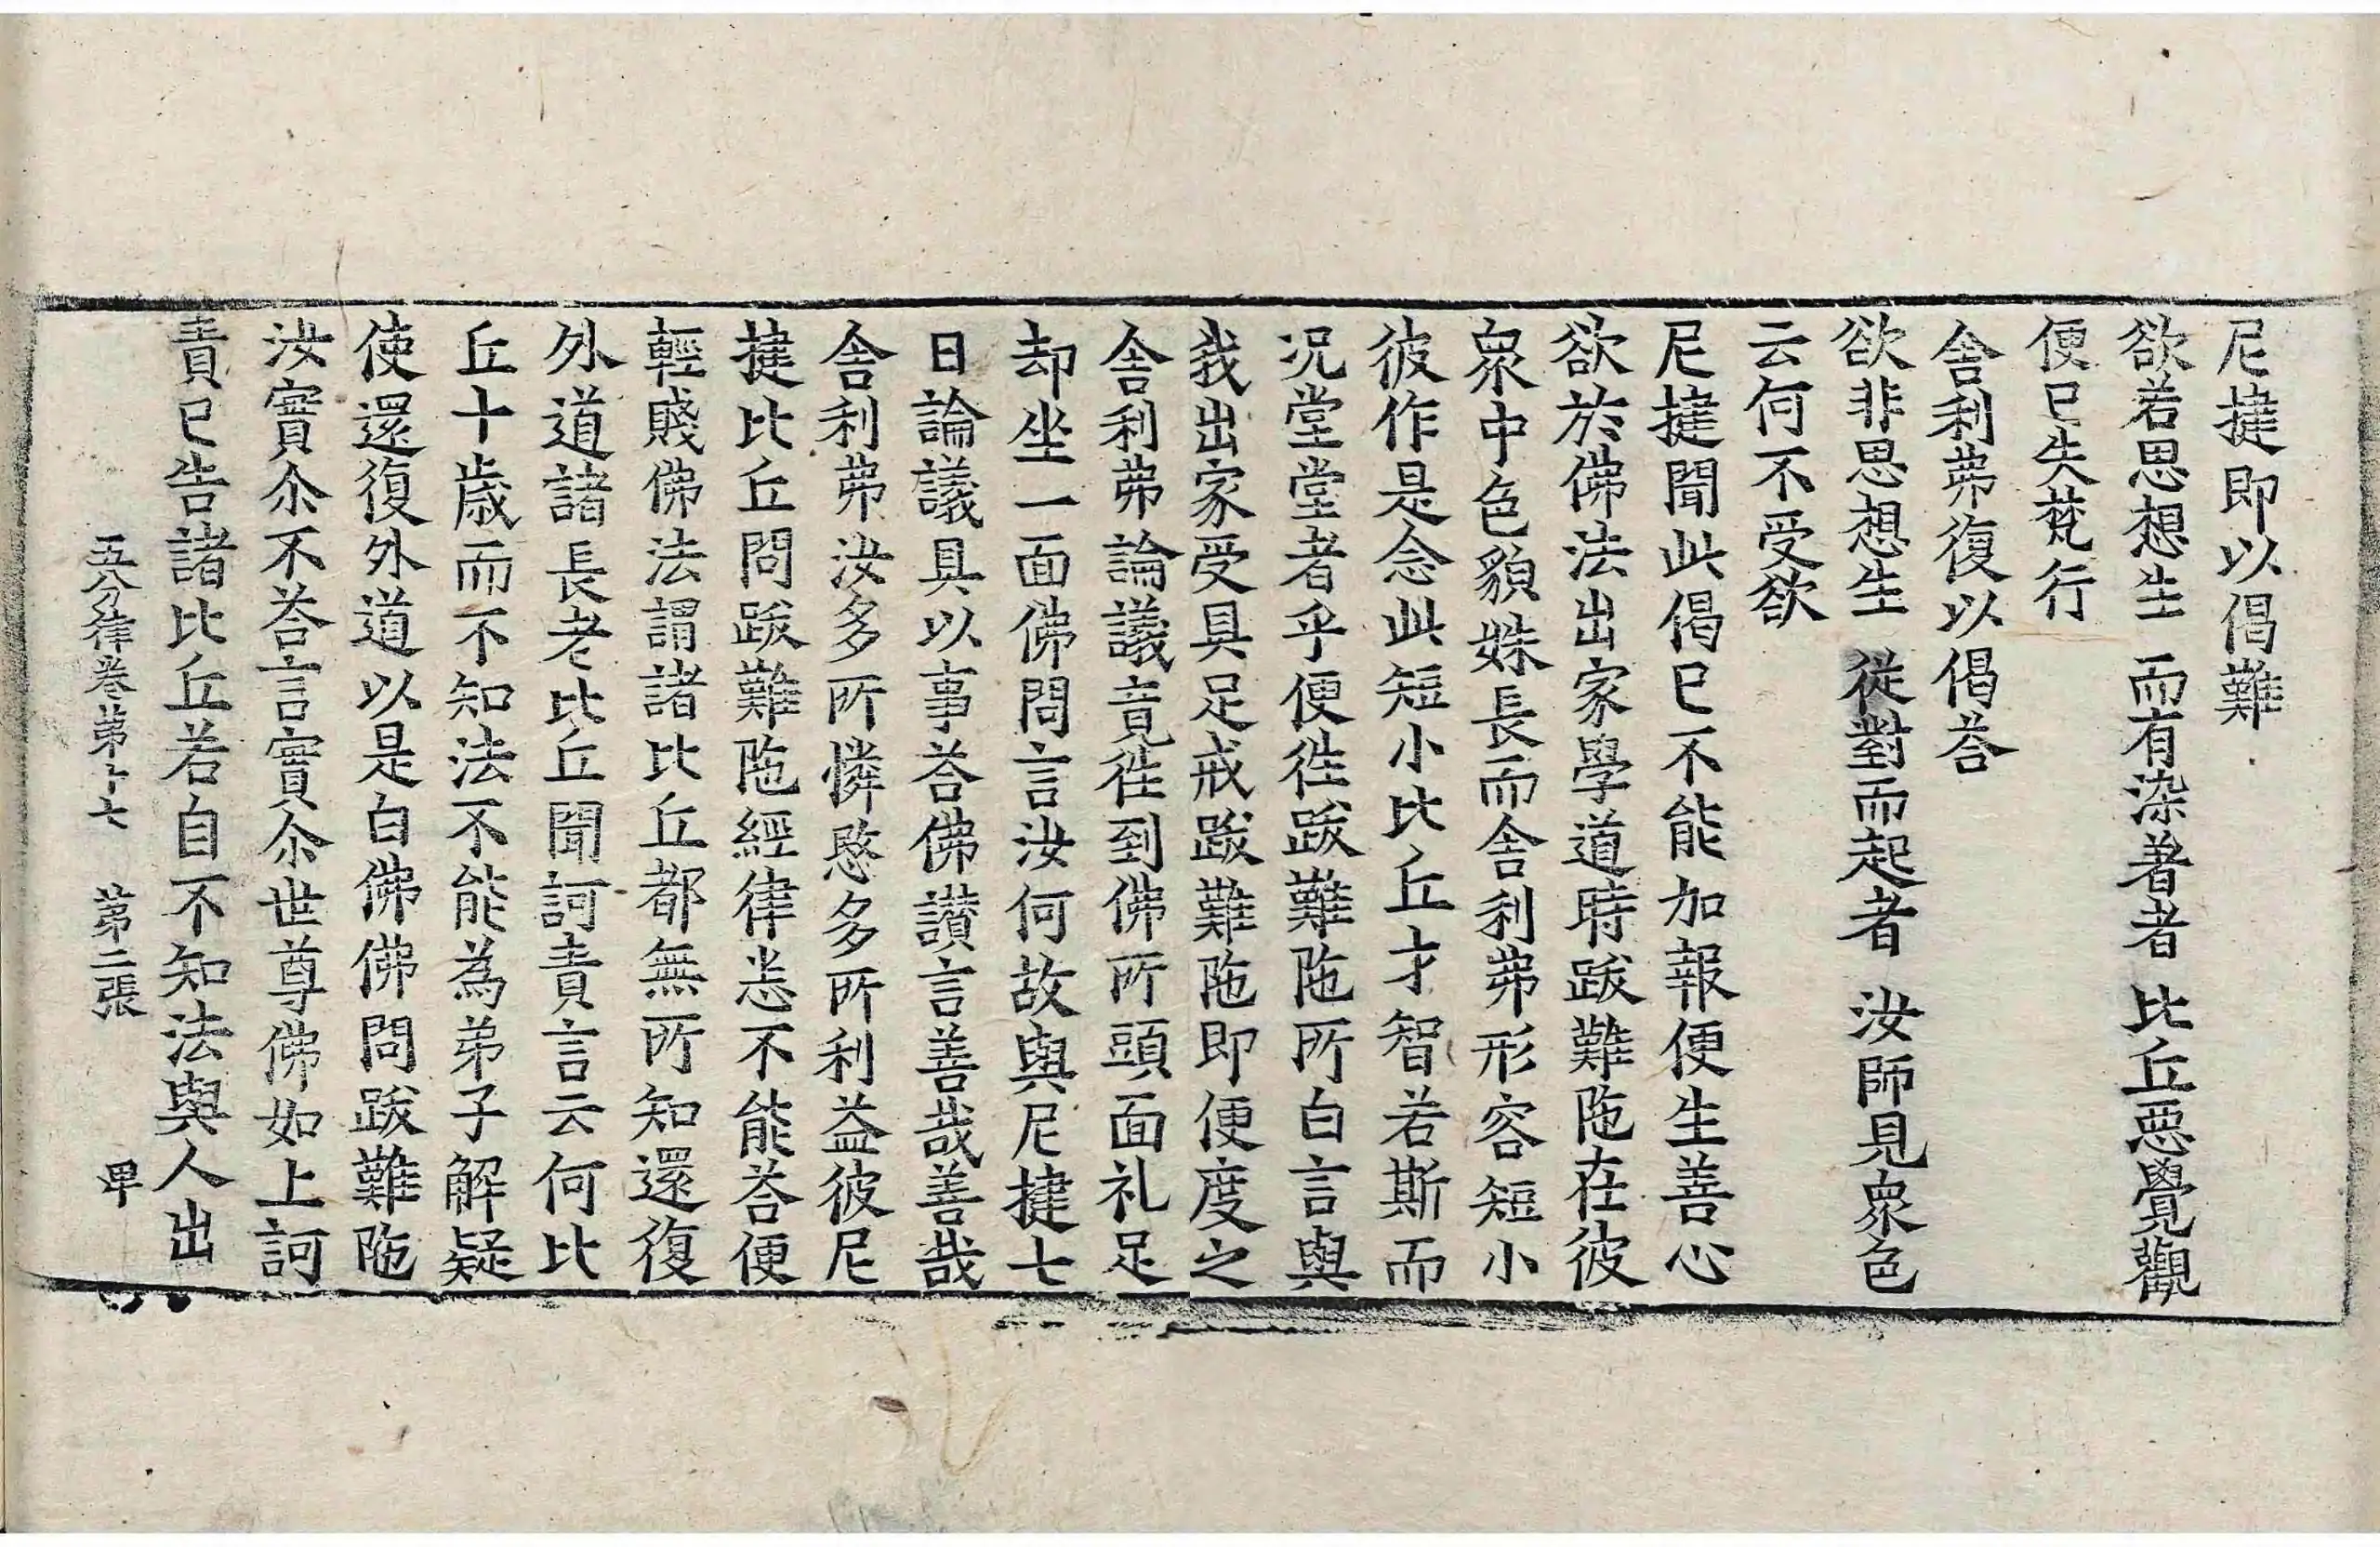 尼揵即以偈難
欲若思想生　而有染著者　比丘惡覺觀
便已失梵行
舍利弗復以偈荅
欲非思想生　從對而起者　汝師見衆色
云何不受欲
尼揵聞此偈已不能加報便生善心
欲於佛法出家學道時跋難陁在彼
衆中色貌姝長而舍利弗形容短小
彼作是念此短小比丘才智若斯而
况堂堂者乎便徃跋難陁所白言與
我出家受具足戒跋難陁即便度之
舍利弗論議竟徃到佛所頭面礼足
却坐一面佛問言汝何故與尼揵七
日論議具以事荅佛讃言善哉善哉
舍利弗汝多所憐愍多所利益彼尼
揵比丘問跋難陁經律恙不能荅便
輕賤佛法謂諸比丘都無所知還復
外道諸長老比丘聞訶責言云何比
丘十歳而不知法不能為弟子解疑
使還復外道以是白佛佛問跋難陁
汝實尒不荅言實尒世尊佛如上訶
責已告諸比丘若自不知法與人出
五分律卷第十七　第二張　甲